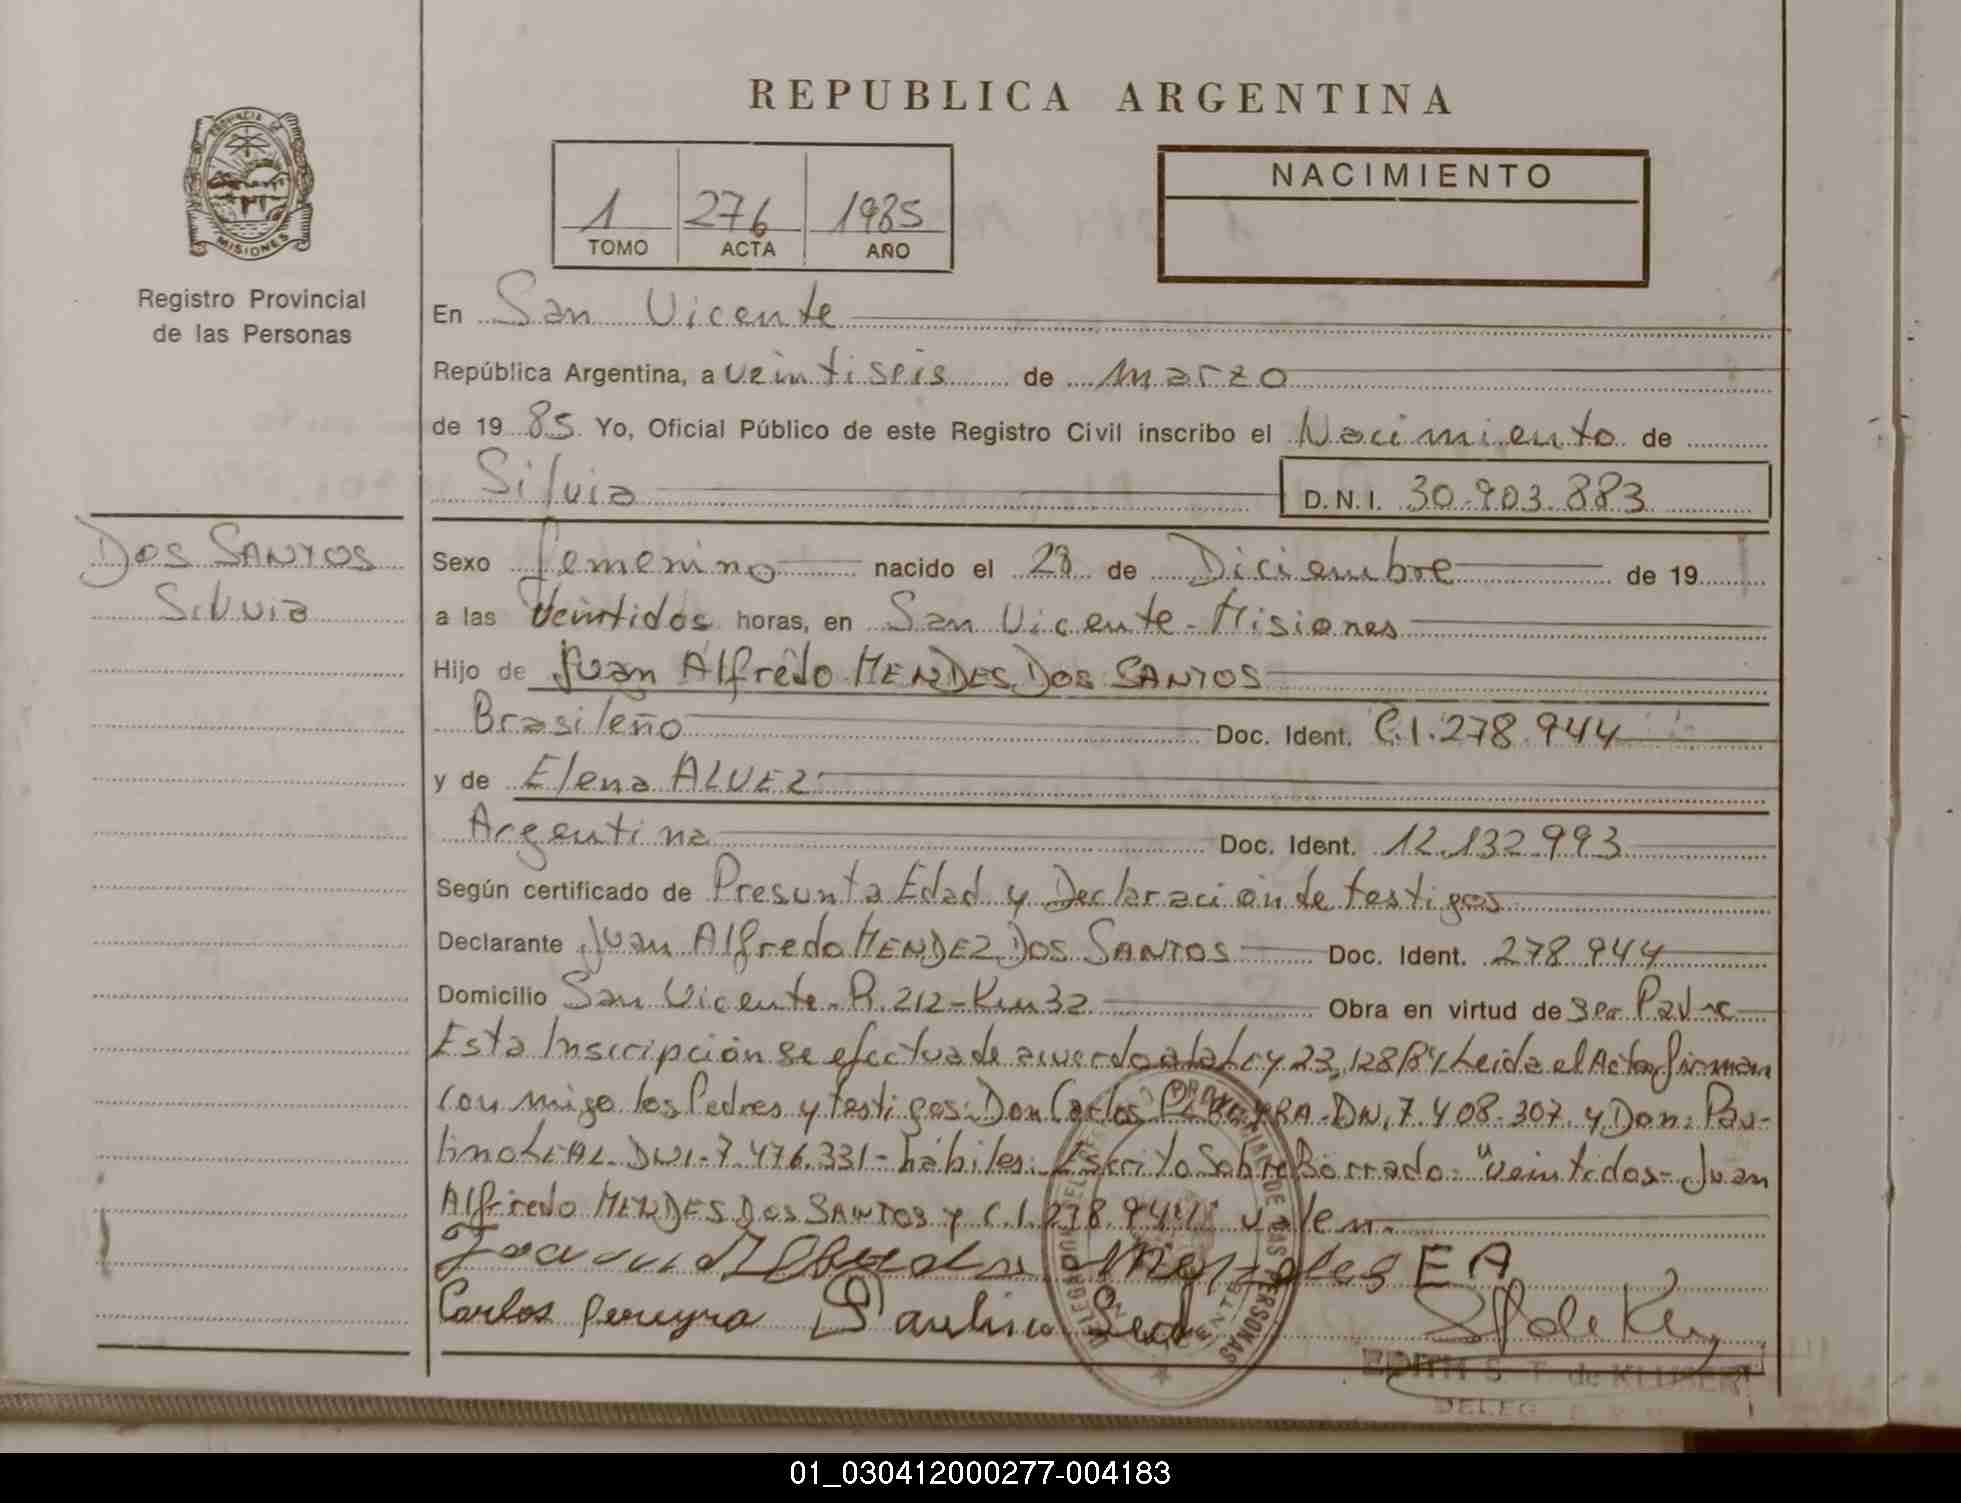 REPUBLICA ARGENTINA
PROVINCIA DE
MISIONES
Registro Provincial
de las Personas
1 276 1985
TOMO ACTA AÑO
NACIMIENTO
En San Vicente
República Argentina, a veintiseis de marzo
de 19 85 Yo, Oficial Público de este Registro Civil inscribo el Nacimiento de
Silvia D.N.I. 30.903.883
DOS SANTOS
Silvia
Sexo femenino nacido el 28 de Diciembre de 19
a las Veintidos horas, en San Vicente - Misiones
Hijo de Juan Alfredo MENDES DOS SANTOS
Brasileño Doc. Ident. C.I. 278.944
y de Elena ALVEZ
Argentina Doc. Ident. 12.132.993
Según certificado de Presunta Edad y Declaración de testigos
Declarante Juan Alfredo MENDEZ DOS SANTOS Doc. Ident. 278.944
Domicilio San Vicente - R. 212 - Km 32 Obra en virtud de ser Padre
Esta Inscripción se efectua de acuerdo a la Ley 23.128/84 Leida el Acta firman
con migo los Padres y testigos: Don Carlos PEREYRA - DNI, 7.408.307 y Don: Pau-
lino LEAL DNI - 7.476.331 - hábiles. Escrito Sobre Borrado: "veintidos - Juan
Alfredo MENDES DOS SANTOS y C.I. 278.944" valen.
EA
Carlos Pereyra Paulino
EDITH S. T. de
DELEG
01_030412000277-004183